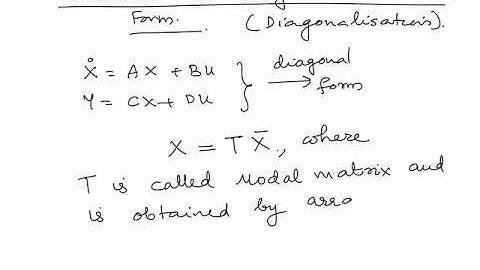 Form. (Diagonalisation).
Ẋ = AX + BU } diagonal
Y = CX + DU } → form
X = T X̄, where
T is called Modal matrix and
is obtained by arra